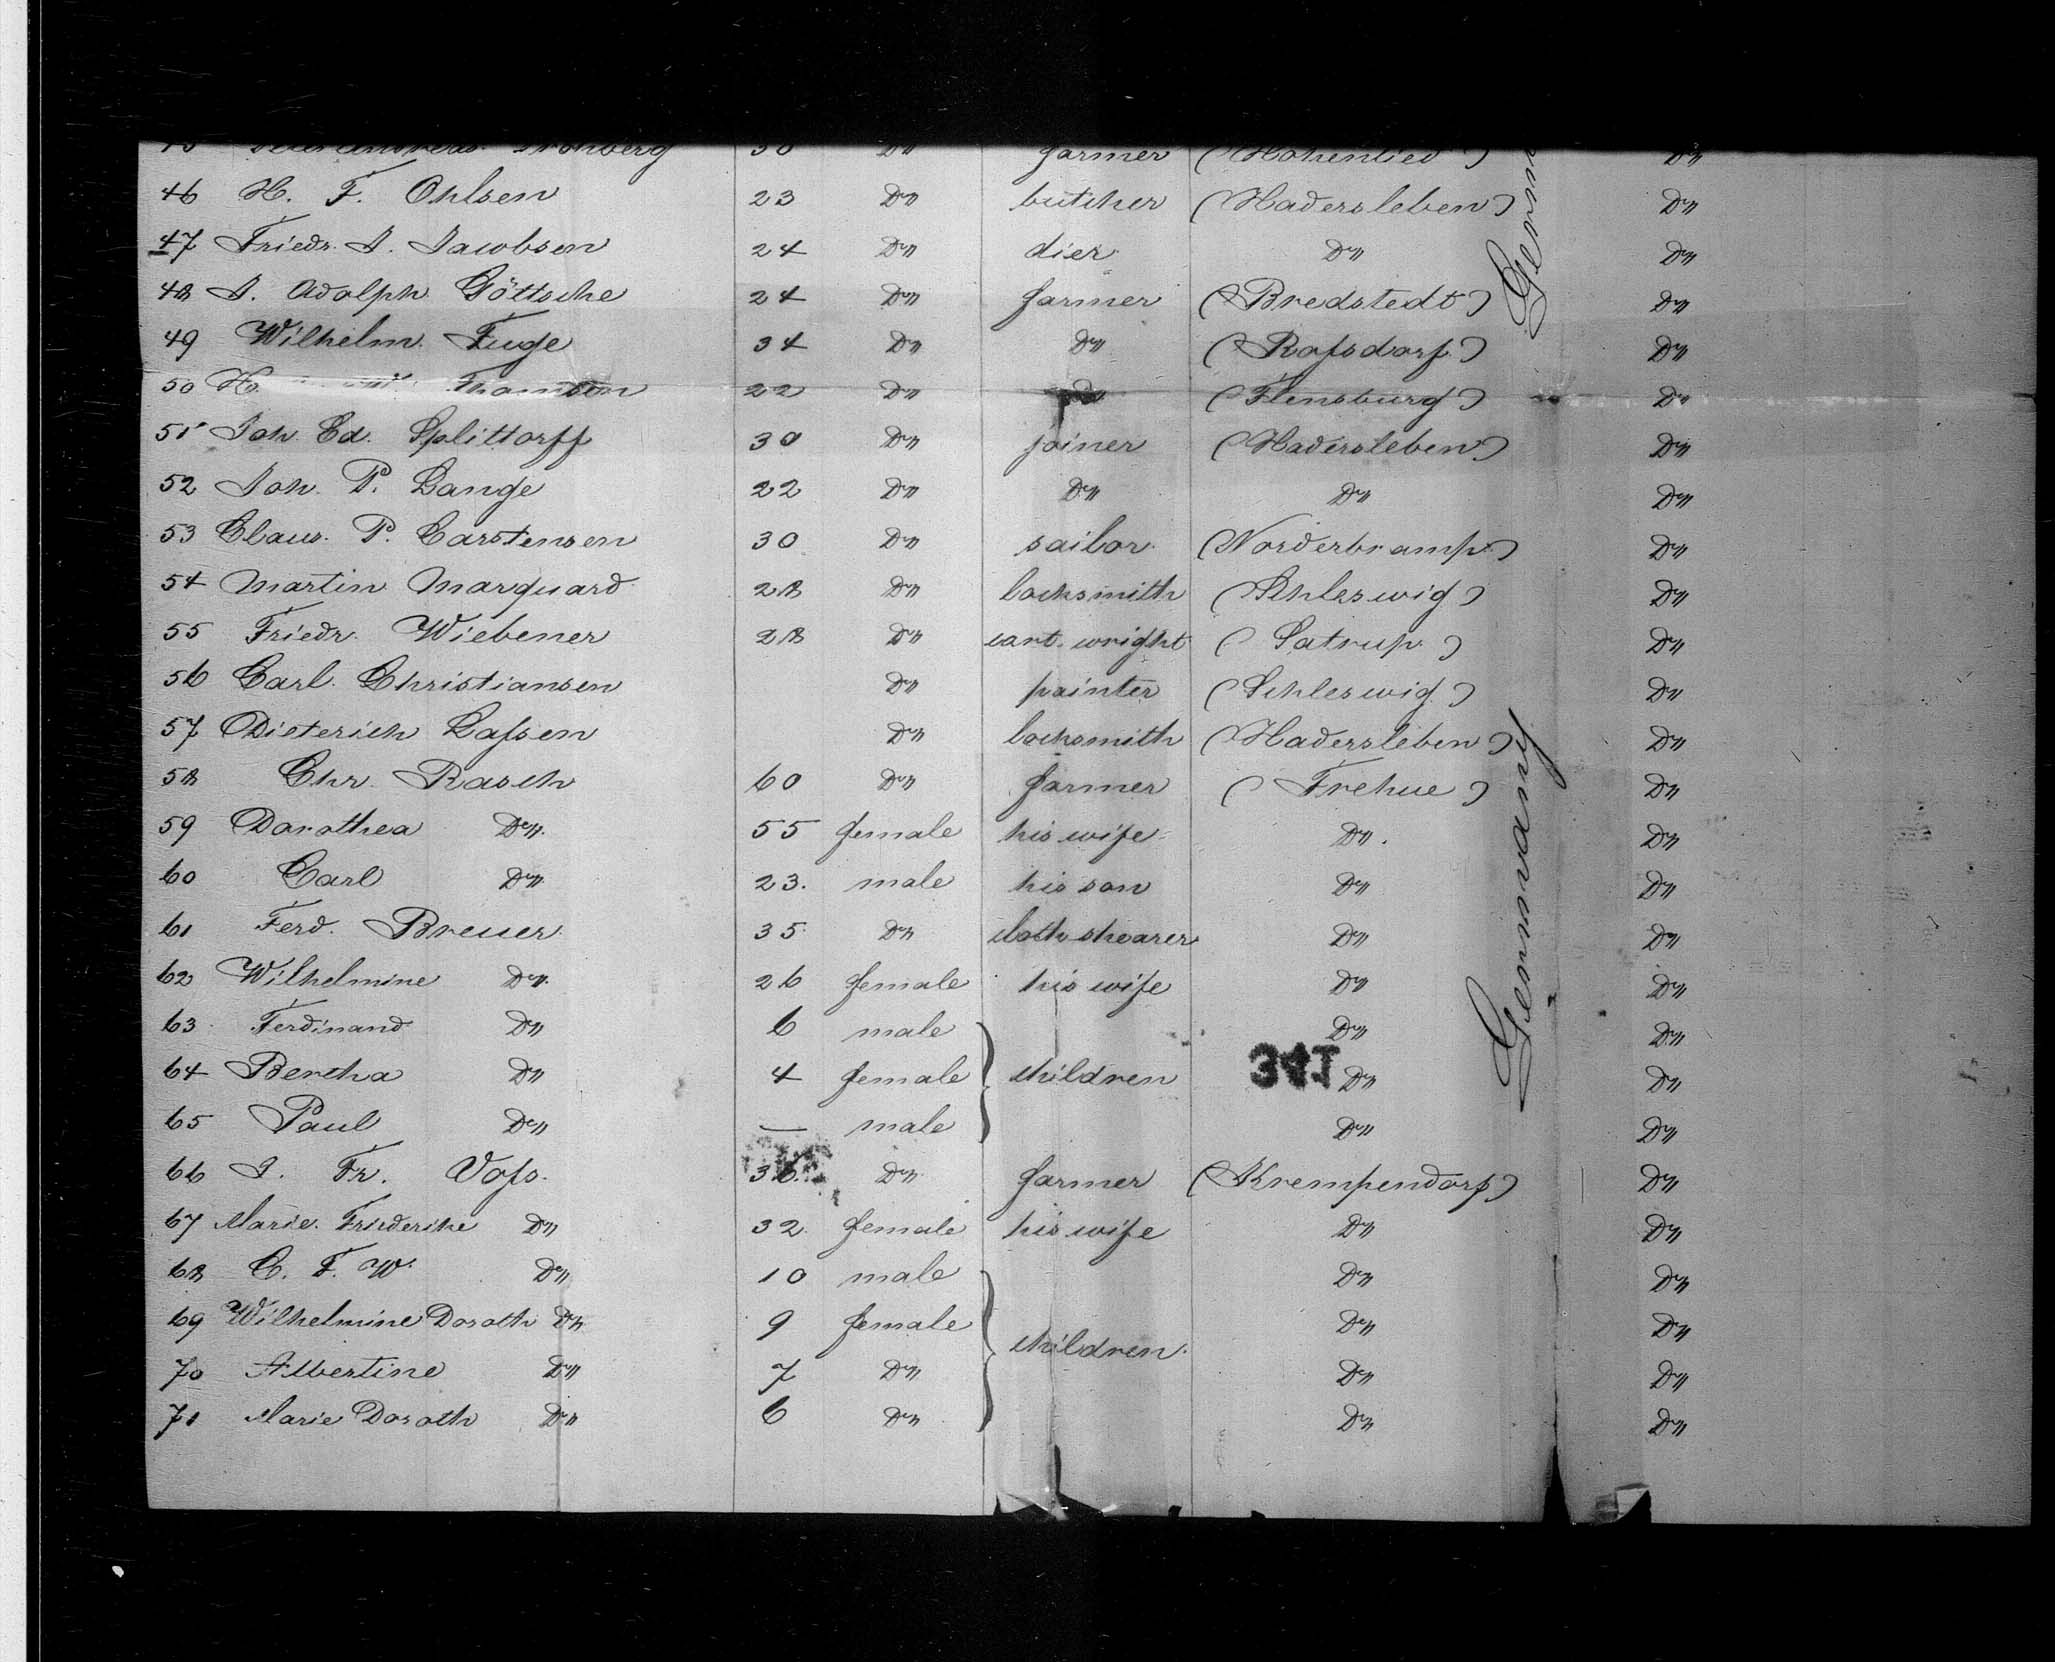 farmer (Hohenlied) Do
46 H. F. Ohlsen 23 Do butcher (Hadersleben) Do
47 Friedr. J. Jacobsen 24 Do dier Do Do
48 J. Adolph Göttsche 24 Do farmer (Bredstedt) Do
49 Wilhelm Fuge 34 Do Do (Rofsdorf) Do
50 H. Thomsen 22 Do Do (Flensburg) Do
51 Joh. Ed. Splittorff 30 Do joiner (Hadersleben) Do
52 Joh. P. Lange 22 Do Do Do Do
53 Claus. P. Carstensen 30 Do sailor (Norderbramp) Do
54 Martin Marquard 28 Do locksmith (Schleswig) Do
55 Friedr. Wiebener 28 Do cart. wright (Satrup) Do
56 Carl Christiansen Do painter (Schleswig) Do
57 Dieterich Lafsen Do locksmith (Hadersleben) Do
58 Chr. Rasch 60 Do farmer (Frehue) Do
59 Dorothea Do 55 female his wife Do Do
60 Carl Do 23. male his son Do Do
61 Ferd. Breuer 35 Do cloth shearer Do Do
62 Wilhelmine Do 26 female his wife Do Do
63 Ferdinand Do 6 male Do Do
64 Bertha Do 4 female children Do Do
65 Paul Do — male Do Do
66 J. Fr. Vofs. 36. Do farmer (Krempendorf) Do
67 Marie Friederike Do 32 female his wife Do Do
68 C. F. W. Do 10 male Do Do
69 Wilhelmine Doroth Do 9 female children. Do Do
70 Albertine Do 7 Do Do Do
71 Marie Doroth Do 6 Do Do Do
Germany
341